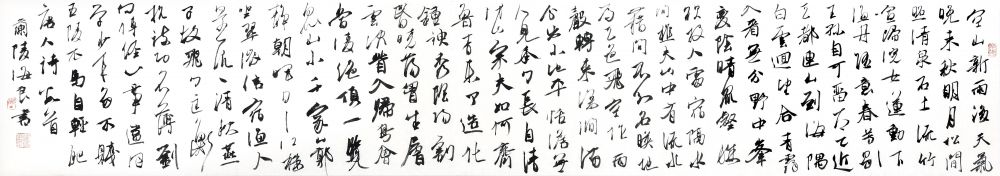 空山新雨後天氣
晚來秋明月松間
照清泉石上流竹
喧歸浣女蓮動下
漁舟隨意春芳歇
王孫自可留太乙近
天都連山到海隅
白雲迴望合青靄
入看無分野中峰
變陰晴眾壑殊
欲投人處宿隔水
問樵夫山中有流水
藉問不知名映地
為天色飛空作雨
聲轉來深澗滿
分出小池平恬澹無
人見年年長自清
岱宗夫如何齊
魯青未了造化
鍾神秀陰陽割
昏曉蕩胸生層
雲決眥入歸鳥會
當凌絕頂一覽
眾山小千家山郭
靜朝暉日日江樓
坐翠微信宿漁人
還汎汎清秋燕
子故飛飛匡衡
抗疏功名薄劉
向傳經心事違同
學少年多不賤
五陵衣馬自輕肥
唐人詩首
蘭陵海良書